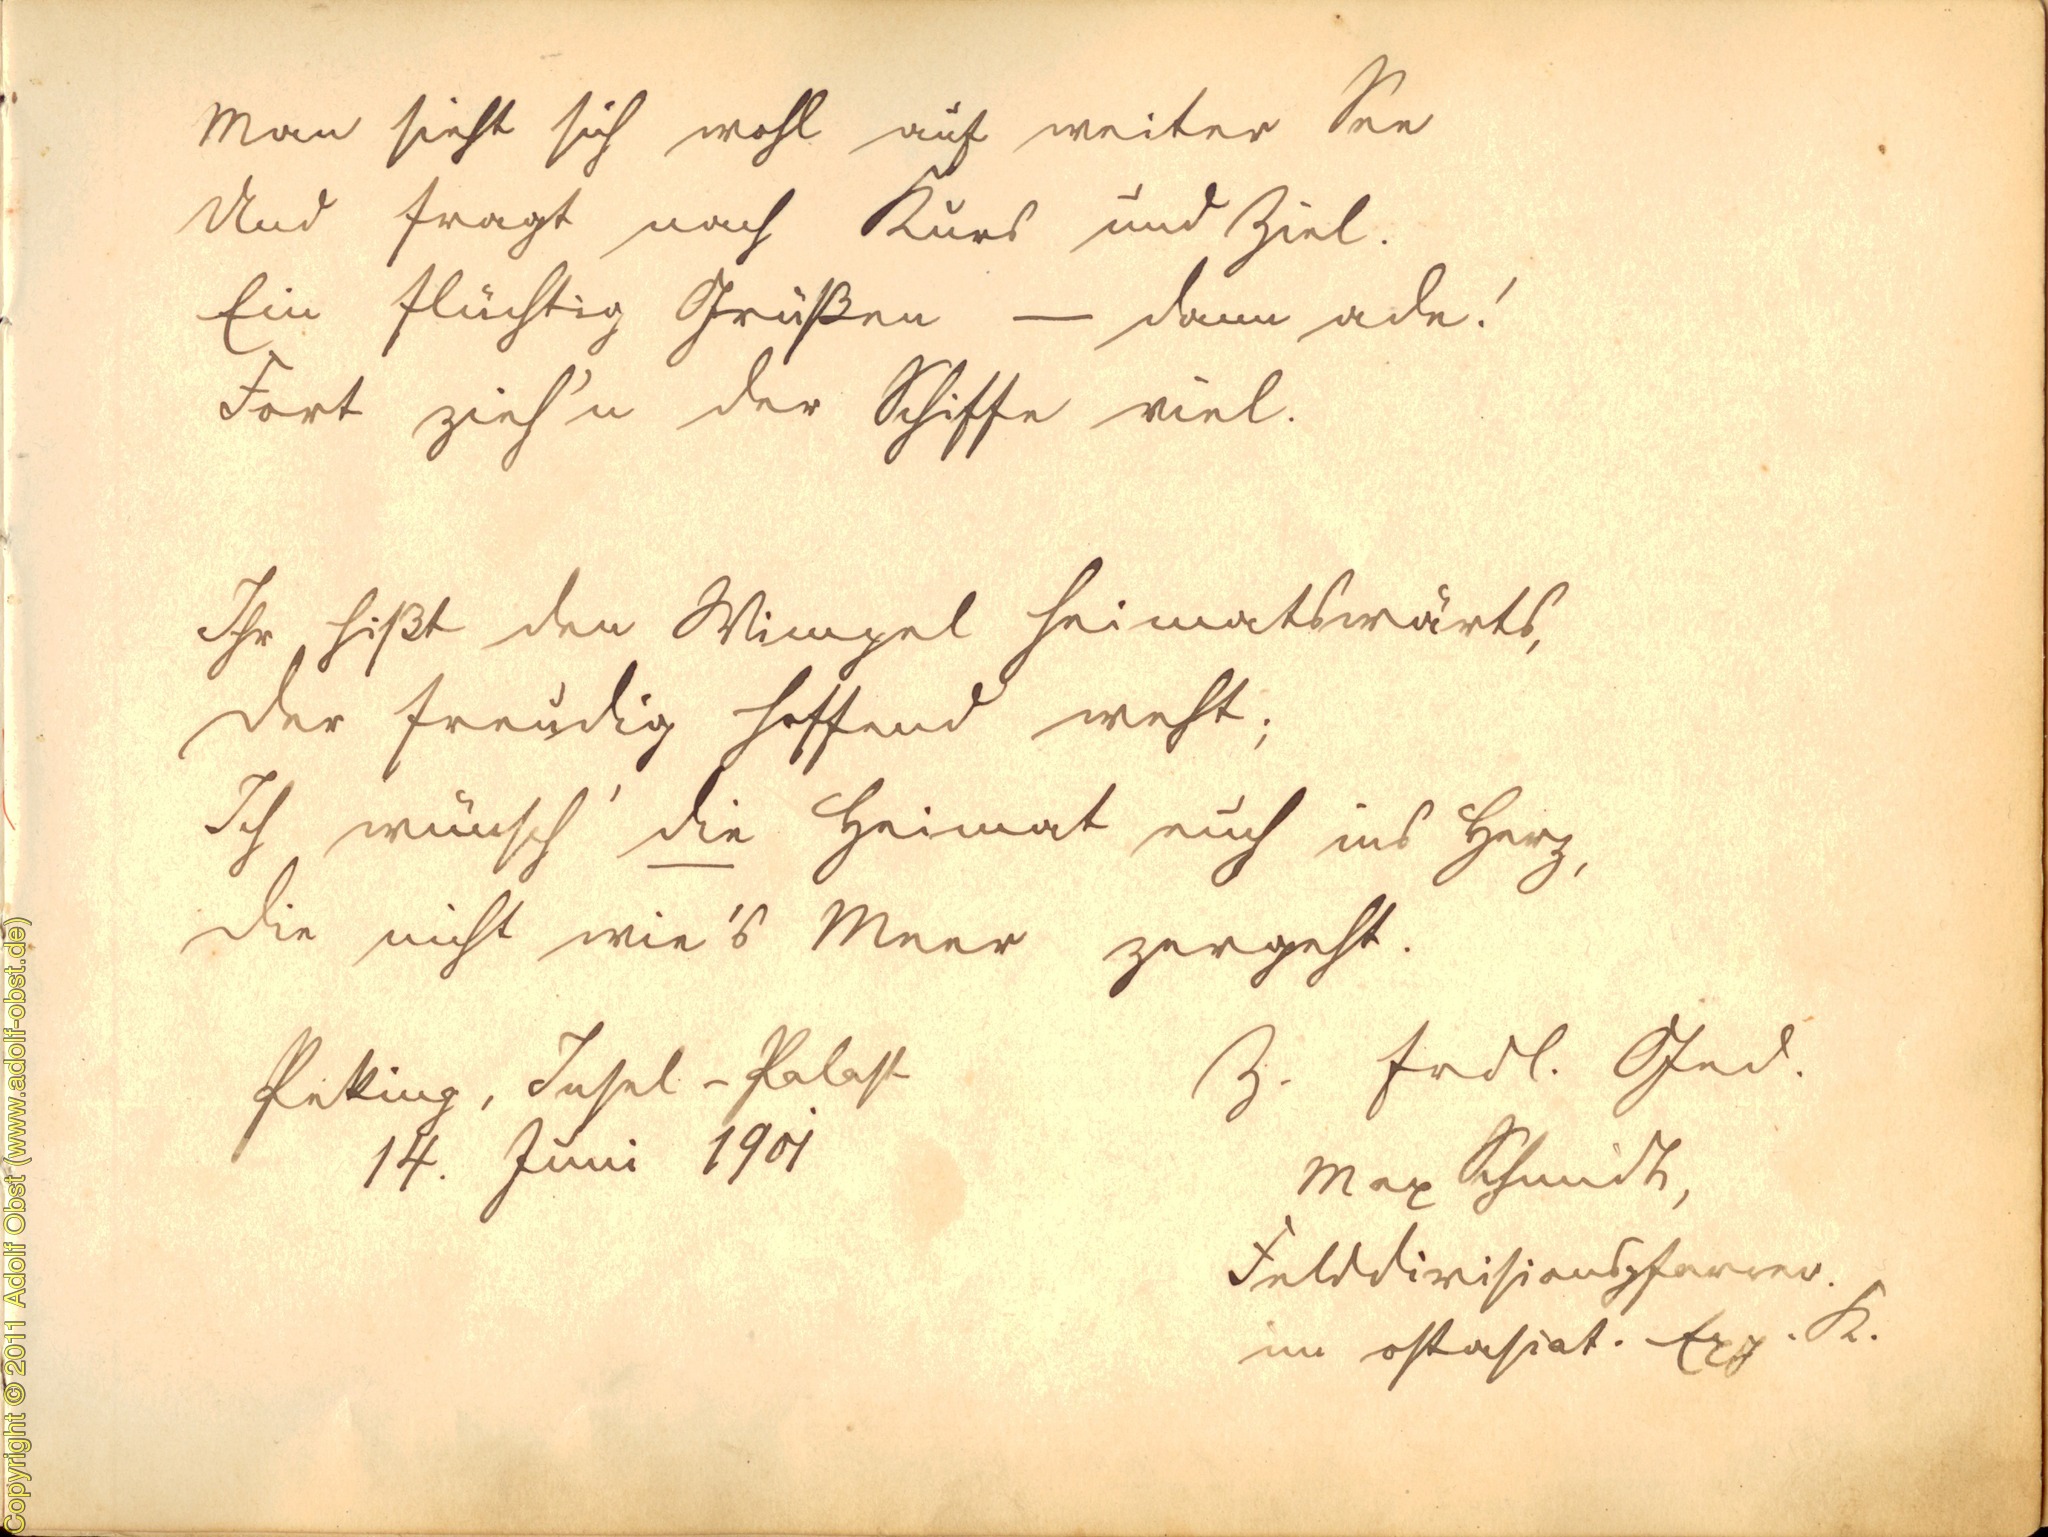 Man sieht sich wohl auf weiter See
Und fragt nach Kurs und Ziel.
Ein flüchtig Grüßen — dann ade!
Fort zieh'n der Schiffe viel.
Ihr hißt den Wimpel heimatswärts,
Der freudig hoffend weht;
Ich wünsch' die Heimat euch ins Herz,
Die nicht wie's Meer zergeht.
Peking, Insel-Palast
14. Juni 1901
Z. frdl. Ged.
Max Schmidt,
Felddivisionspfarrer.
im ostasiat. Exp. K.
Copyright © 2011 Adolf Obst (www.adolf-obst.de)